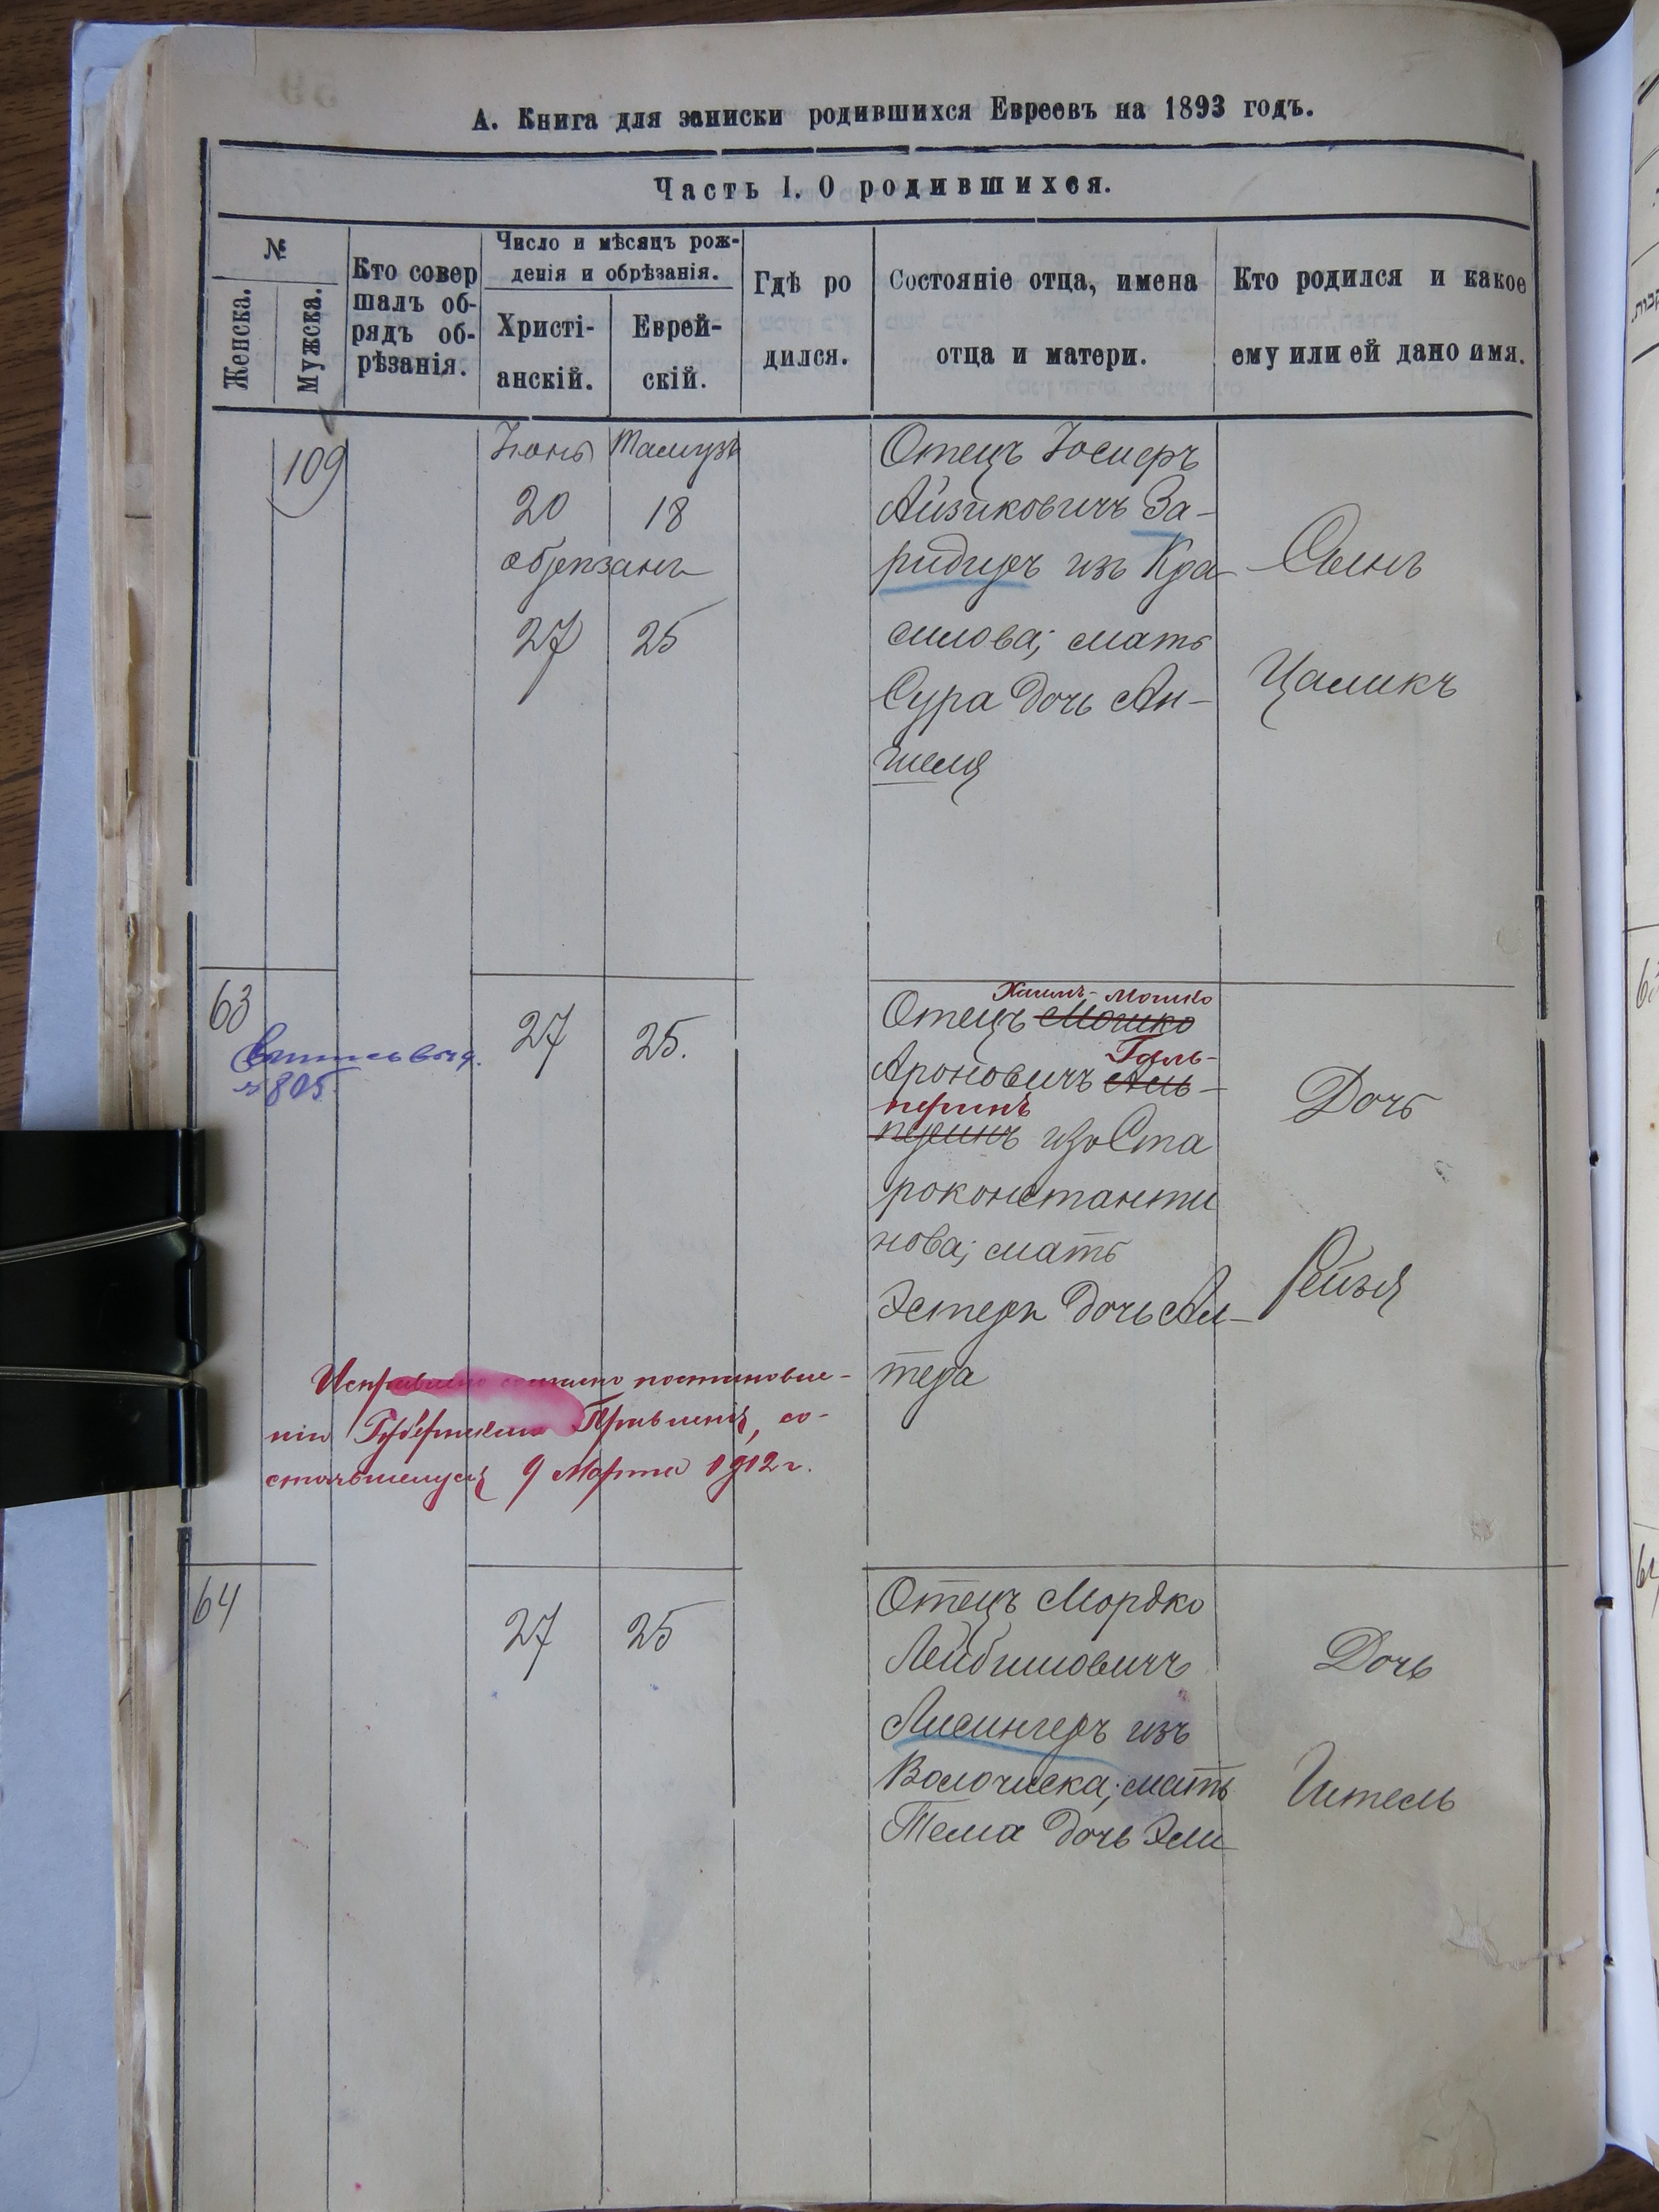 А. Книга для записки родившихся Евреевъ на 1893 годъ.
Часть I. О родившихся.
№
Женска.
Мужска.
Кто совер
шалъ об-
рядъ об-
рѣзанія.
Число и мѣсяцъ рож-
денія и обрѣзанія.
Христі-
анскій.
Еврей-
скій.
Гдѣ ро
дился.
Состояніе отца, имена
отца и матери.
Кто родился и какое
ему или ей дано имя.
109
Іюнь
Тамузъ
20
18
обрезанъ
27
25
Отецъ Іосифъ
Айзиковичъ За-
ридзеръ изъ Кра-
силова; мать
Сура дочь Ан-
шеля
Сынъ
Цаликъ
63
27
25.
Хаимъ-Мошко
Отецъ Мошко
Галь-
Ароновичъ Аль-
перинъ
перинъ изъ Ста
роконстанти
нова; мать
Эстеръ дочь Ал-
тера
Дочь
Рейзя
Исправлено согласно постановле-
нію Губернскаго Правленія, со-
стоявшемуся 9 Марта 1912 г.
64
27
25
Отецъ Мордко
Лейбишовичъ
Лисингеръ изъ
Волочиска; мать
Тема дочь Эли
Дочь
Гитель